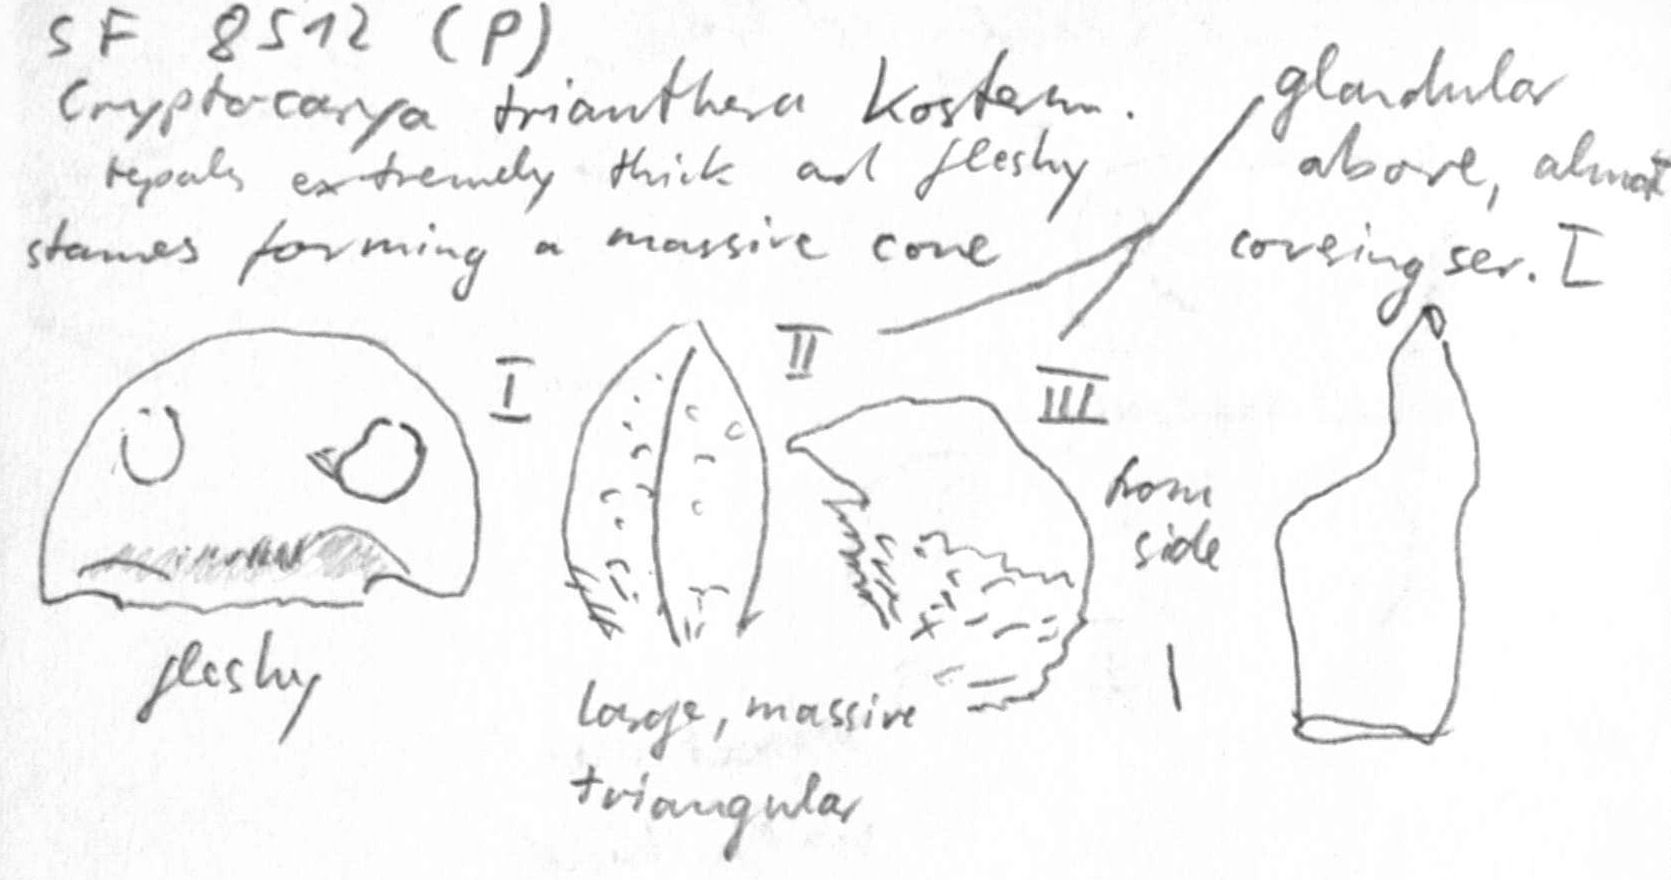 SF 8512 (P)
Cryptocarya trianthera Kosterm.
tepals extremely thick and fleshy
stames forming a massive cone
glandular
above, almost
covering ser. I
I
II
III
from
side
fleshy
large, massive
triangular